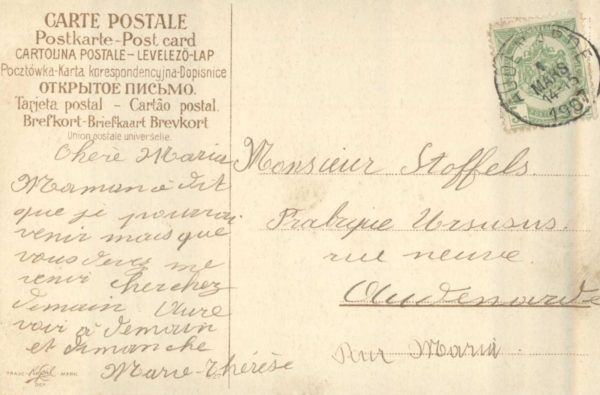 CARTE POSTALE
Postkarte-Post card
CARTOLINA POSTALE-LEVELEZÖ-LAP
Pocztówka-Karta korespondencyjna-Dopisnice
ОТКРЫТОЕ ПИСЬМО.
Tarjeta postal - Cartão postal.
Brefkort-Briefkaart Brevkort
Union postale universelle.
Chère Maria
Maman a dit
que je pourrai
venir mais que
vous devez me
venir Cherchez
demain Aure
voir à demain
et dimanche
Marie-Thérèse
Monsieur Stoffels.
Frabrique Ursusus.
rue neuve.
Audenarde
Pour Maria
MARS
1907
TRADE MARK
DEP.